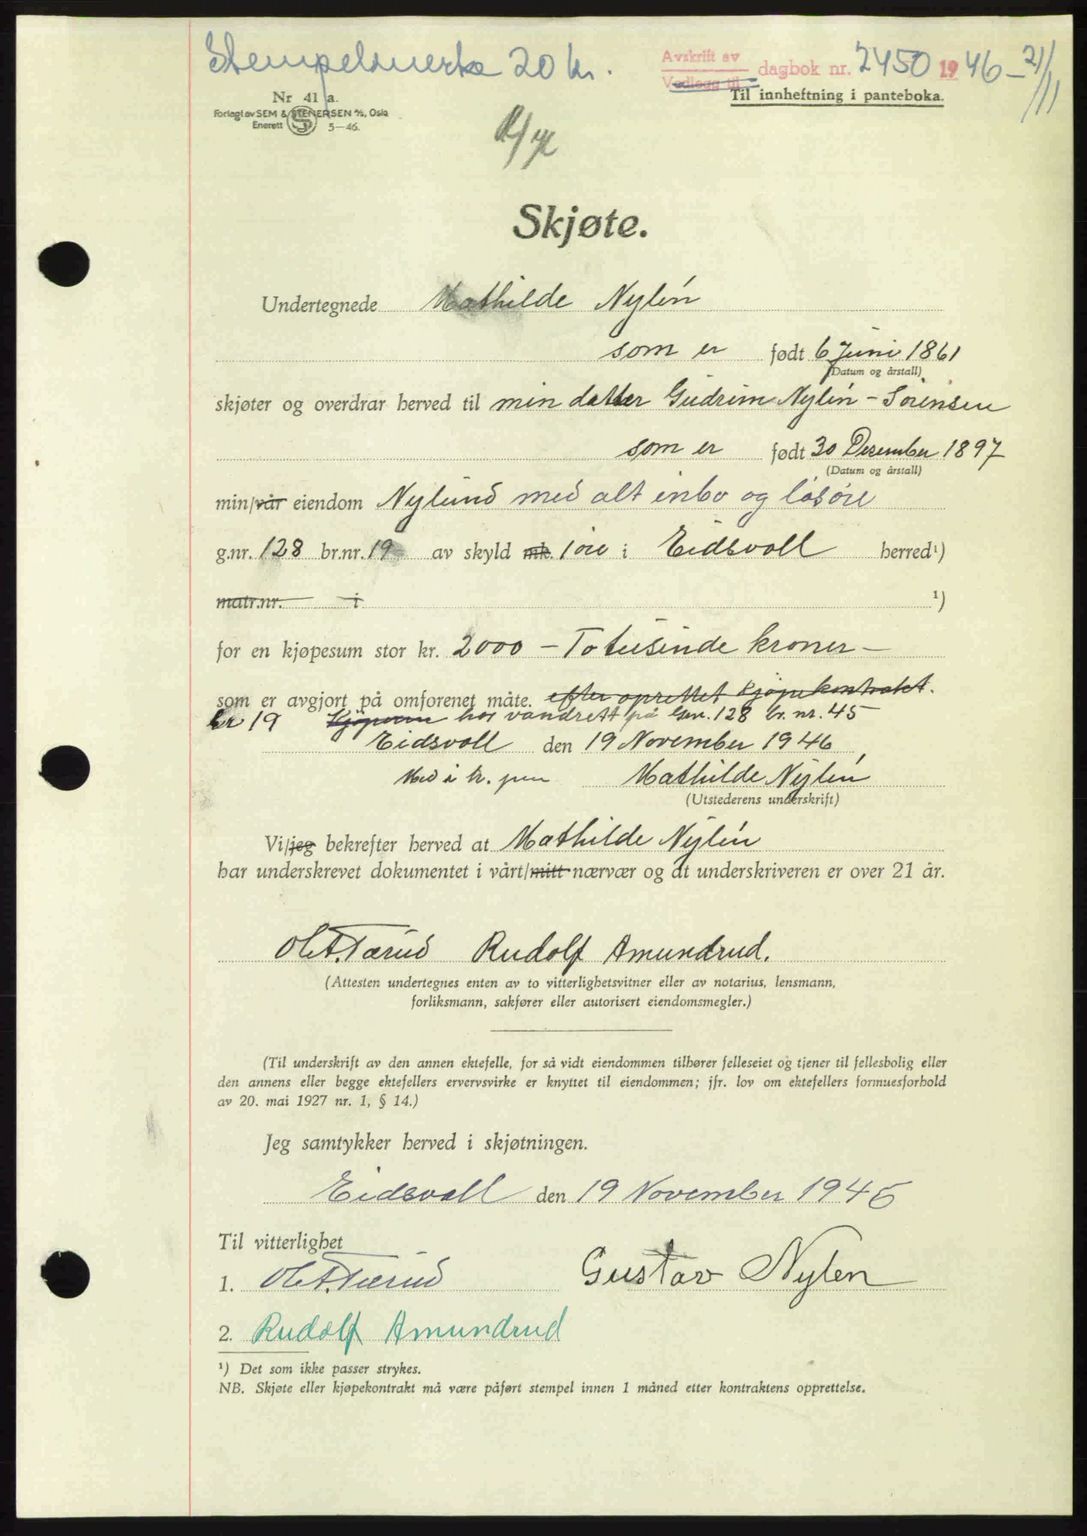 Stempelmerke 20 kr.
Avskrift av
Vedlegg til
dagbok nr. 2450 1946 - 21/11
Til innheftning i panteboka.
Nr 41 a.
Forlagt av SEM & STENERSEN A/S, Oslo
Enerett S 5—46.
Skjøte.
Undertegnede Mathilde Nylén
som er født 6 Juni 1861
(Datum og årstall)
skjøter og overdrar herved til min datter Gudrun Nylén - Sørensen
som er født 30 Desember 1897
(Datum og årstall)
min/vår eiendom Nylund med alt inbo og løsøre
g.nr. 128 br.nr. 19 av skyld mk. 1 øre i Eidsvoll herred¹)
matr.nr. i ¹)
for en kjøpesum stor kr. 2000 - Totusinde kroner -
som er avgjort på omforenet måte. efter oprettet kjøpekontrakt.
br 19 har vandrett på Gnr. 128 br. nr. 45
Eidsvoll den 19 November 1946
Med i h. pen Mathilde Nylén
(Utstederens underskrift)
Vi/jeg bekrefter herved at Mathilde Nylén
har underskrevet dokumentet i vårt/mitt nærvær og at underskriveren er over 21 år.
Ol. A. Tærud Rudolf Amundrud.
(Attesten undertegnes enten av to vitterlighetsvitner eller av notarius, lensmann,
forliksmann, sakfører eller autorisert eiendomsmegler.)
(Til underskrift av den annen ektefelle, for så vidt eiendommen tilhører felleseiet og tjener til fellesbolig eller
den annens eller begge ektefellers ervervsvirke er knyttet til eiendommen; jfr. lov om ektefellers formuesforhold
av 20. mai 1927 nr. 1, § 14.)
Jeg samtykker herved i skjøtningen.
Eidsvoll den 19 November 1946
Til vitterlighet
1. Ol. A. Tærud Gustav Nylén
2. Rudolf Amundrud
¹) Det som ikke passer strykes.
NB. Skjøte eller kjøpekontrakt må være påført stempel innen 1 måned etter kontraktens opprettelse.